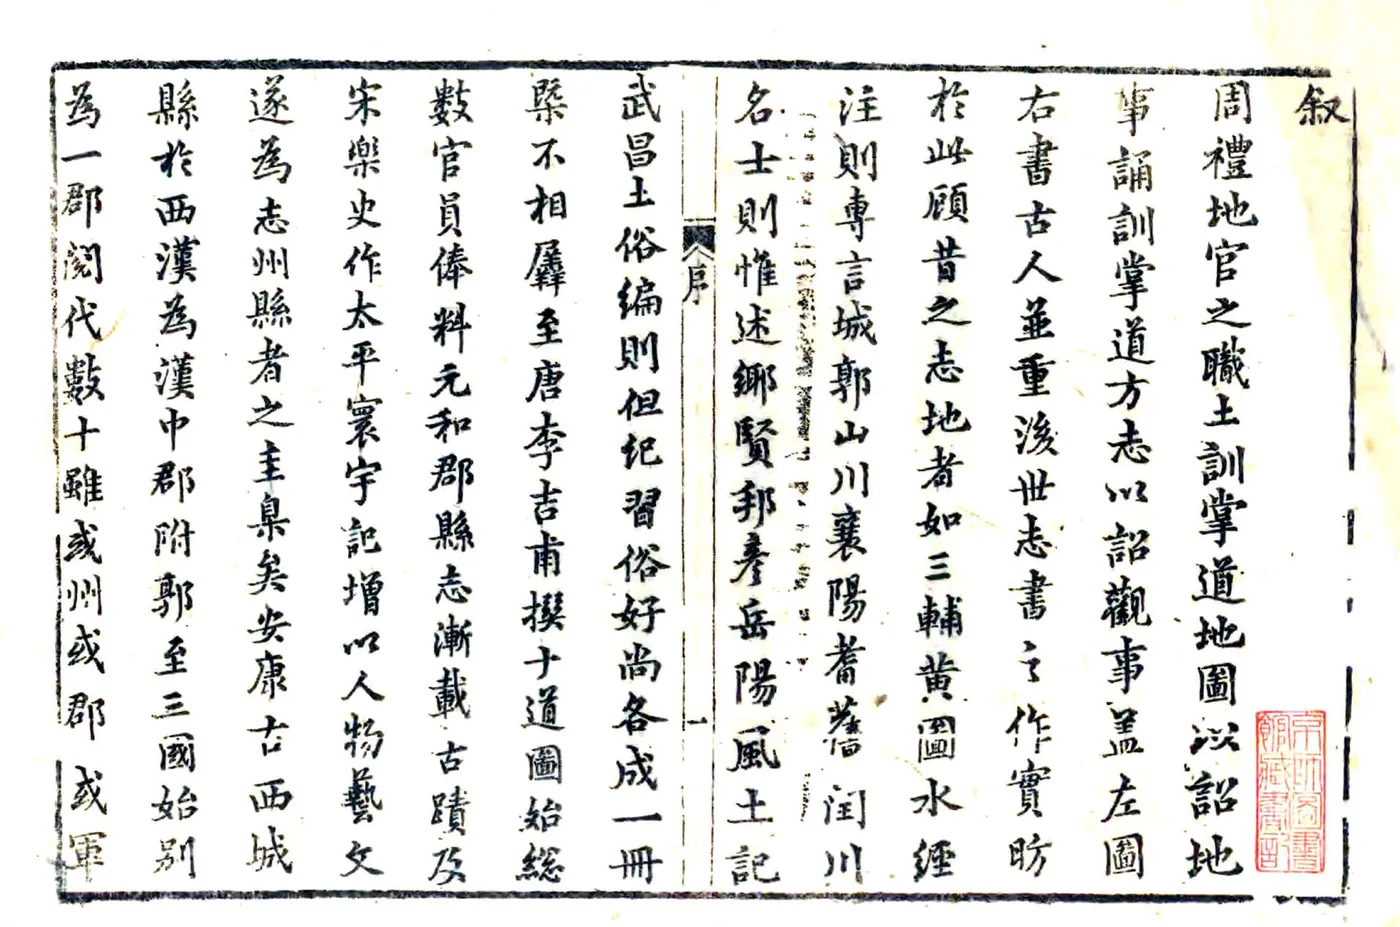 叙
周禮地官之職土訓掌道地圖以詔地
事誦訓掌道方志以詔觀事盖左圖
右書古人並重後世志書之作實昉
於此顧昔之志地者如三輔黄圖水經
注則專言城郭山川襄陽耆舊閏川
名士則惟述鄉賢邦彥岳陽風土記
序
一
武昌土俗編則但紀習俗好尚各成一冊
槩不相羼至唐李吉甫撰十道圖始總
數官員俸料元和郡縣志漸載古蹟及
宋樂史作太平寰宇記增以人物藝文
遂為志州縣者之圭臬矣安康古西城
縣於西漢為漢中郡附郭至三國始别
為一郡閱代數十雖或州或郡或軍
京師圖書
館藏書記